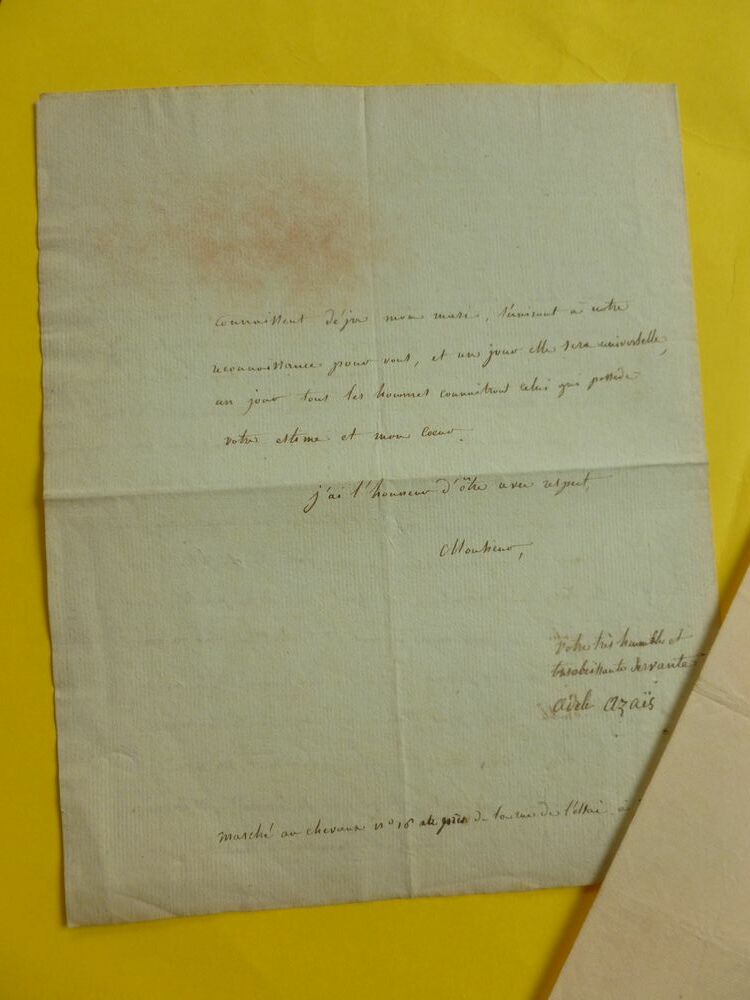 connaissent déja mon mari, réunissent à notre
reconnoissance pour vous, et un jour elle sera universelle,
un jour tous les hommes connaitront celui qui possède
votre estime et mon coeur.
j'ai l'honneur d'être avec respect,
Monsieur,
votre très humble et
très obéissante servante
adele azaïs
marché au chevaux n° 16 près de la rue de l'essai